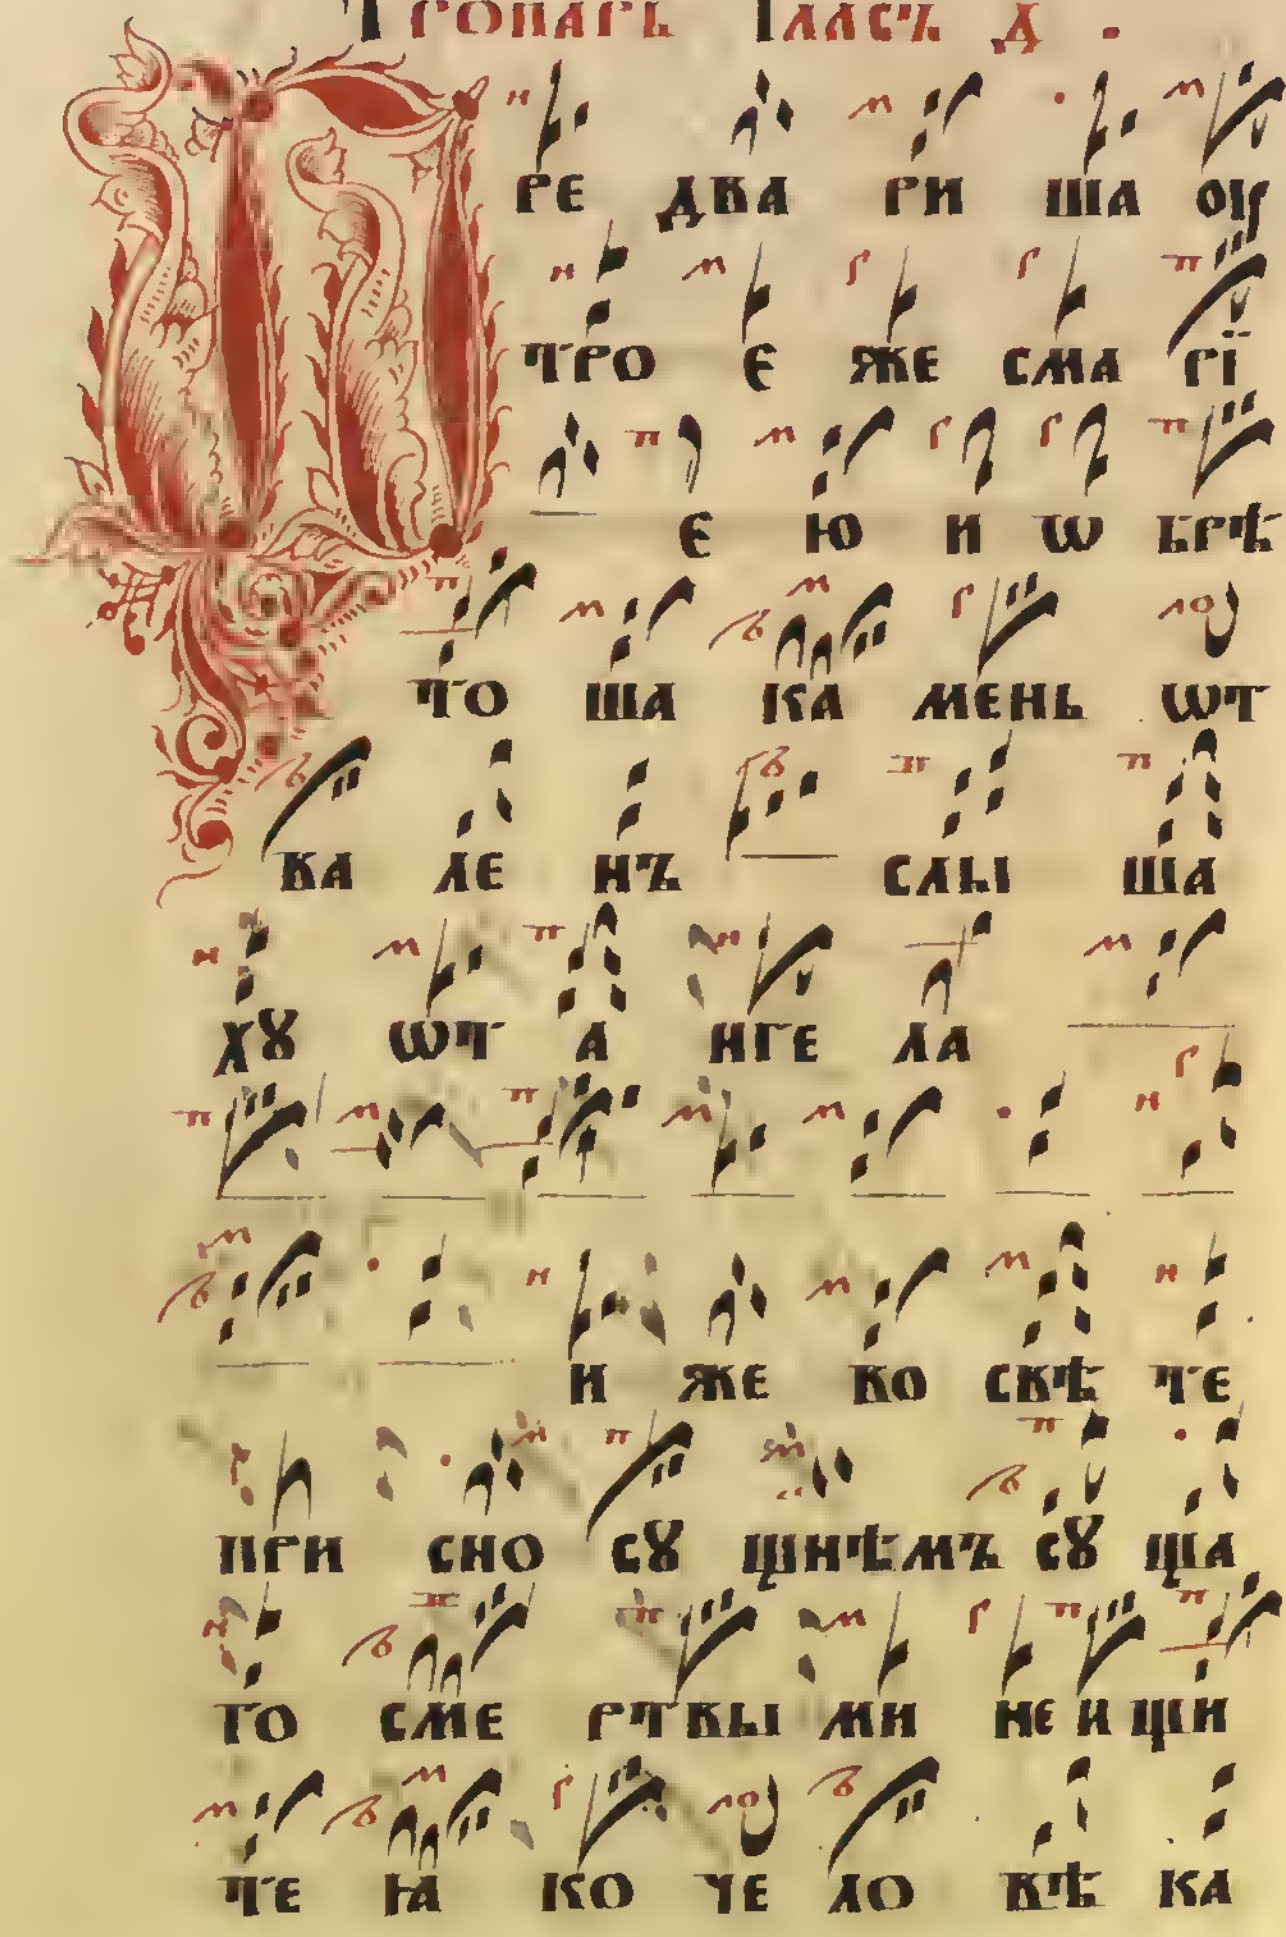 Тропарь Гласъ д҃ .
П
ре два ри ша оу
тро е же сма рї
е ю и ѡ брѣ
то ша ка мень ѿт
ва ле нъ слы ша
хꙋ ѿт а нге ла
и же во свѣ те
при сно сꙋ щнѣмъ сꙋ ща
го сме ртвы ми не и щи
те ꙗ ко че ло вѣ ка